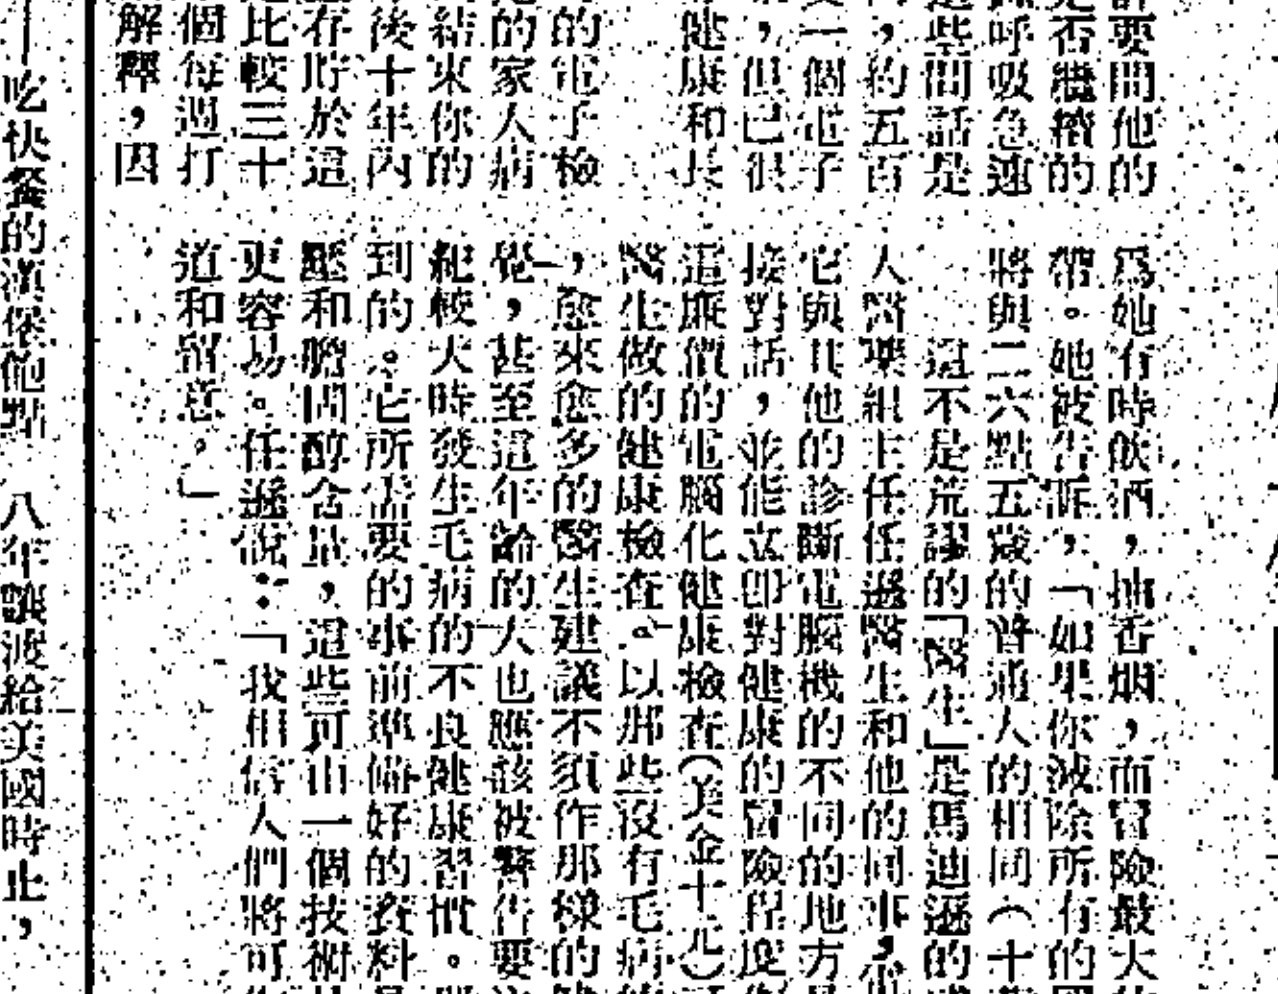 要問他的
是否繼續的
呼吸急速
這些問話是
，約五百
一個電子
，但已很
健康和長
的電子檢
的家人病
結束你的
後十年內
存貯於這
比較三十
個每週打
解釋，因
爲她有時飲酒，抽香烟，而冒險最大
帶。她被告訴，「如果你減除所有的
將與二六點五歲的普通人的相同（十
這不是荒謬的「醫生」是馬迪遜的
人醫藥組主任任遜醫生和他的同事，
它與其他的診斷電腦機的不同的地方
接對話，並能立即對健康的冒險程度
這廉價的電腦化健康檢查（美金十元）
醫生做的健康檢查。以那些沒有毛病
，愈來愈多的醫生建議不須作那樣的
覺，甚至這年齡的人也應該被警告要
紀較大時發生毛病的不良健康習慣。
到的。它所需要的事前準備好的資料
壓和膽固醇含量，這些可由一個技術
更容易。任遜說：「我相信人們將可
道和留意。」
吃快餐的漢堡飽點 八年讓渡給美國時止，